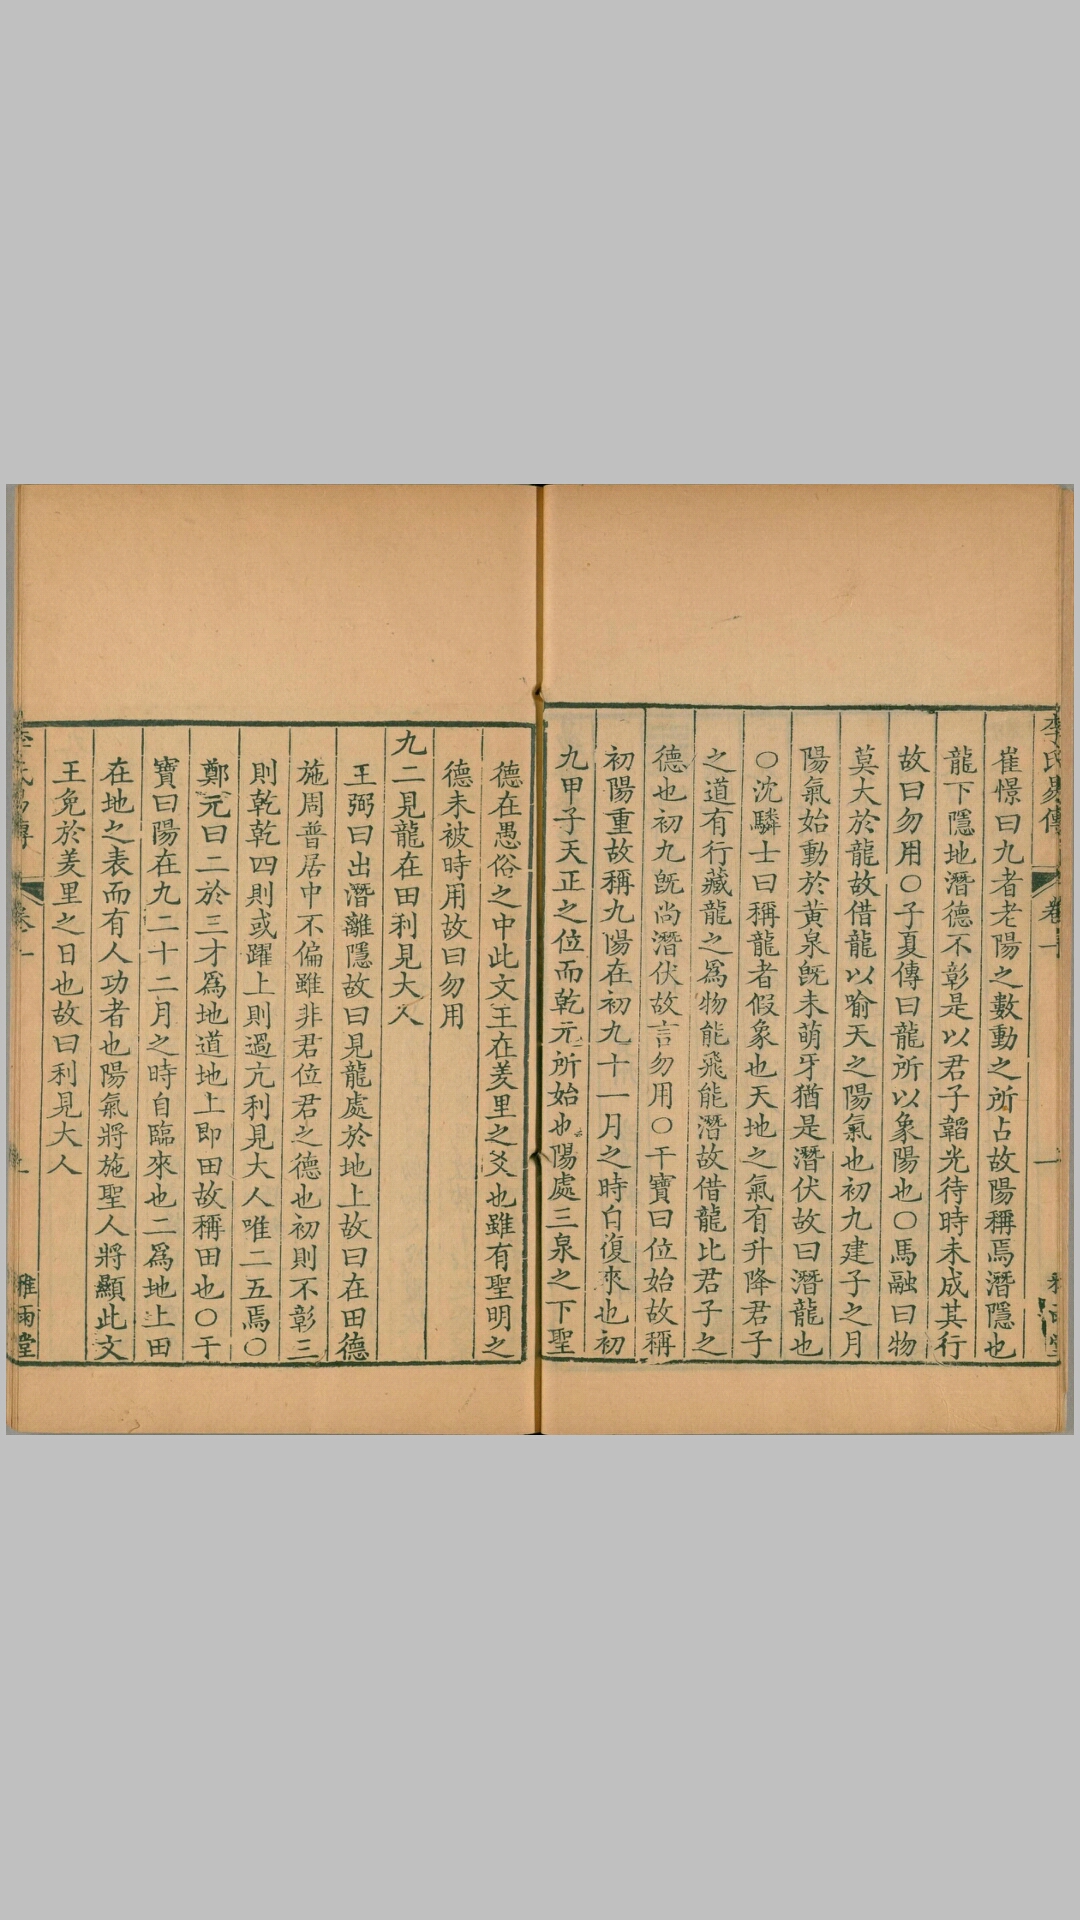 李氏易傳 卷一 一
崔憬曰九者老陽之數動之所占故陽稱焉潛隱也
龍下隱地潛德不彰是以君子韜光待時未成其行
故曰勿用〇子夏傳曰龍所以象陽也〇馬融曰物
莫大於龍故借龍以喻天之陽氣也初九建子之月
陽氣始動於黃泉旣未萌牙猶是潛伏故曰潛龍也
〇沈驎士曰稱龍者假象也天地之氣有升降君子
之道有行藏龍之爲物能飛能潛故借龍比君子之
德也初九旣尚潛伏故言勿用〇干寶曰位始故稱
初陽重故稱九陽在初九十一月之時自復來也初
九甲子天正之位而乾元所始也陽處三泉之下聖
德在愚俗之中此文王在羑里之爻也雖有聖明之
德未被時用故曰勿用
九二見龍在田利見大人
王弼曰出潛離隱故曰見龍處於地上故曰在田德
施周普居中不偏雖非君位君之德也初則不彰三
則乾乾四則或躍上則過亢利見大人唯二五焉〇
鄭元曰二於三才爲地道地上即田故稱田也〇干
寶曰陽在九二十二月之時自臨來也二爲地上田
在地之表而有人功者也陽氣將施聖人將顯此文
王免於羑里之日也故曰利見大人
李氏易傳 卷一 雅雨堂